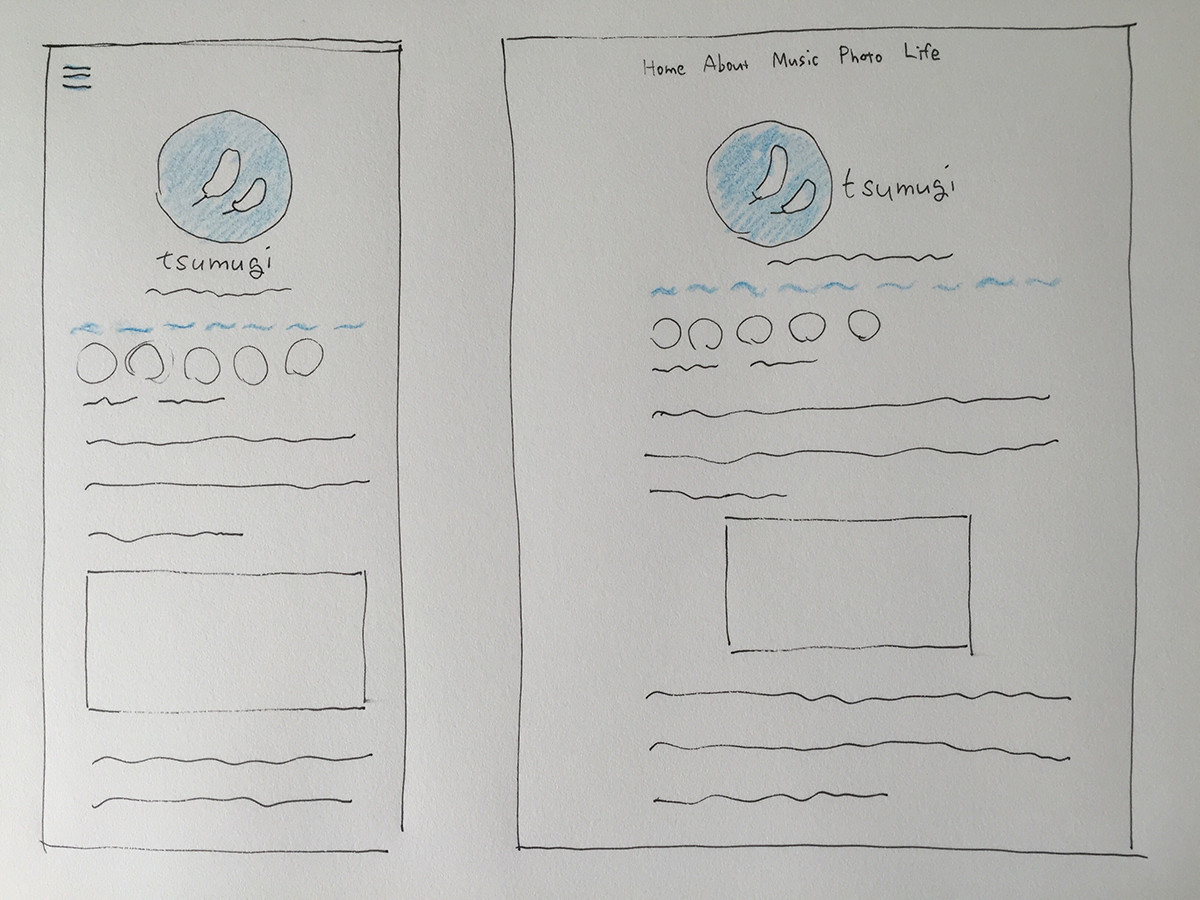 tsumugi
Home About Music Photo Life
tsumugi